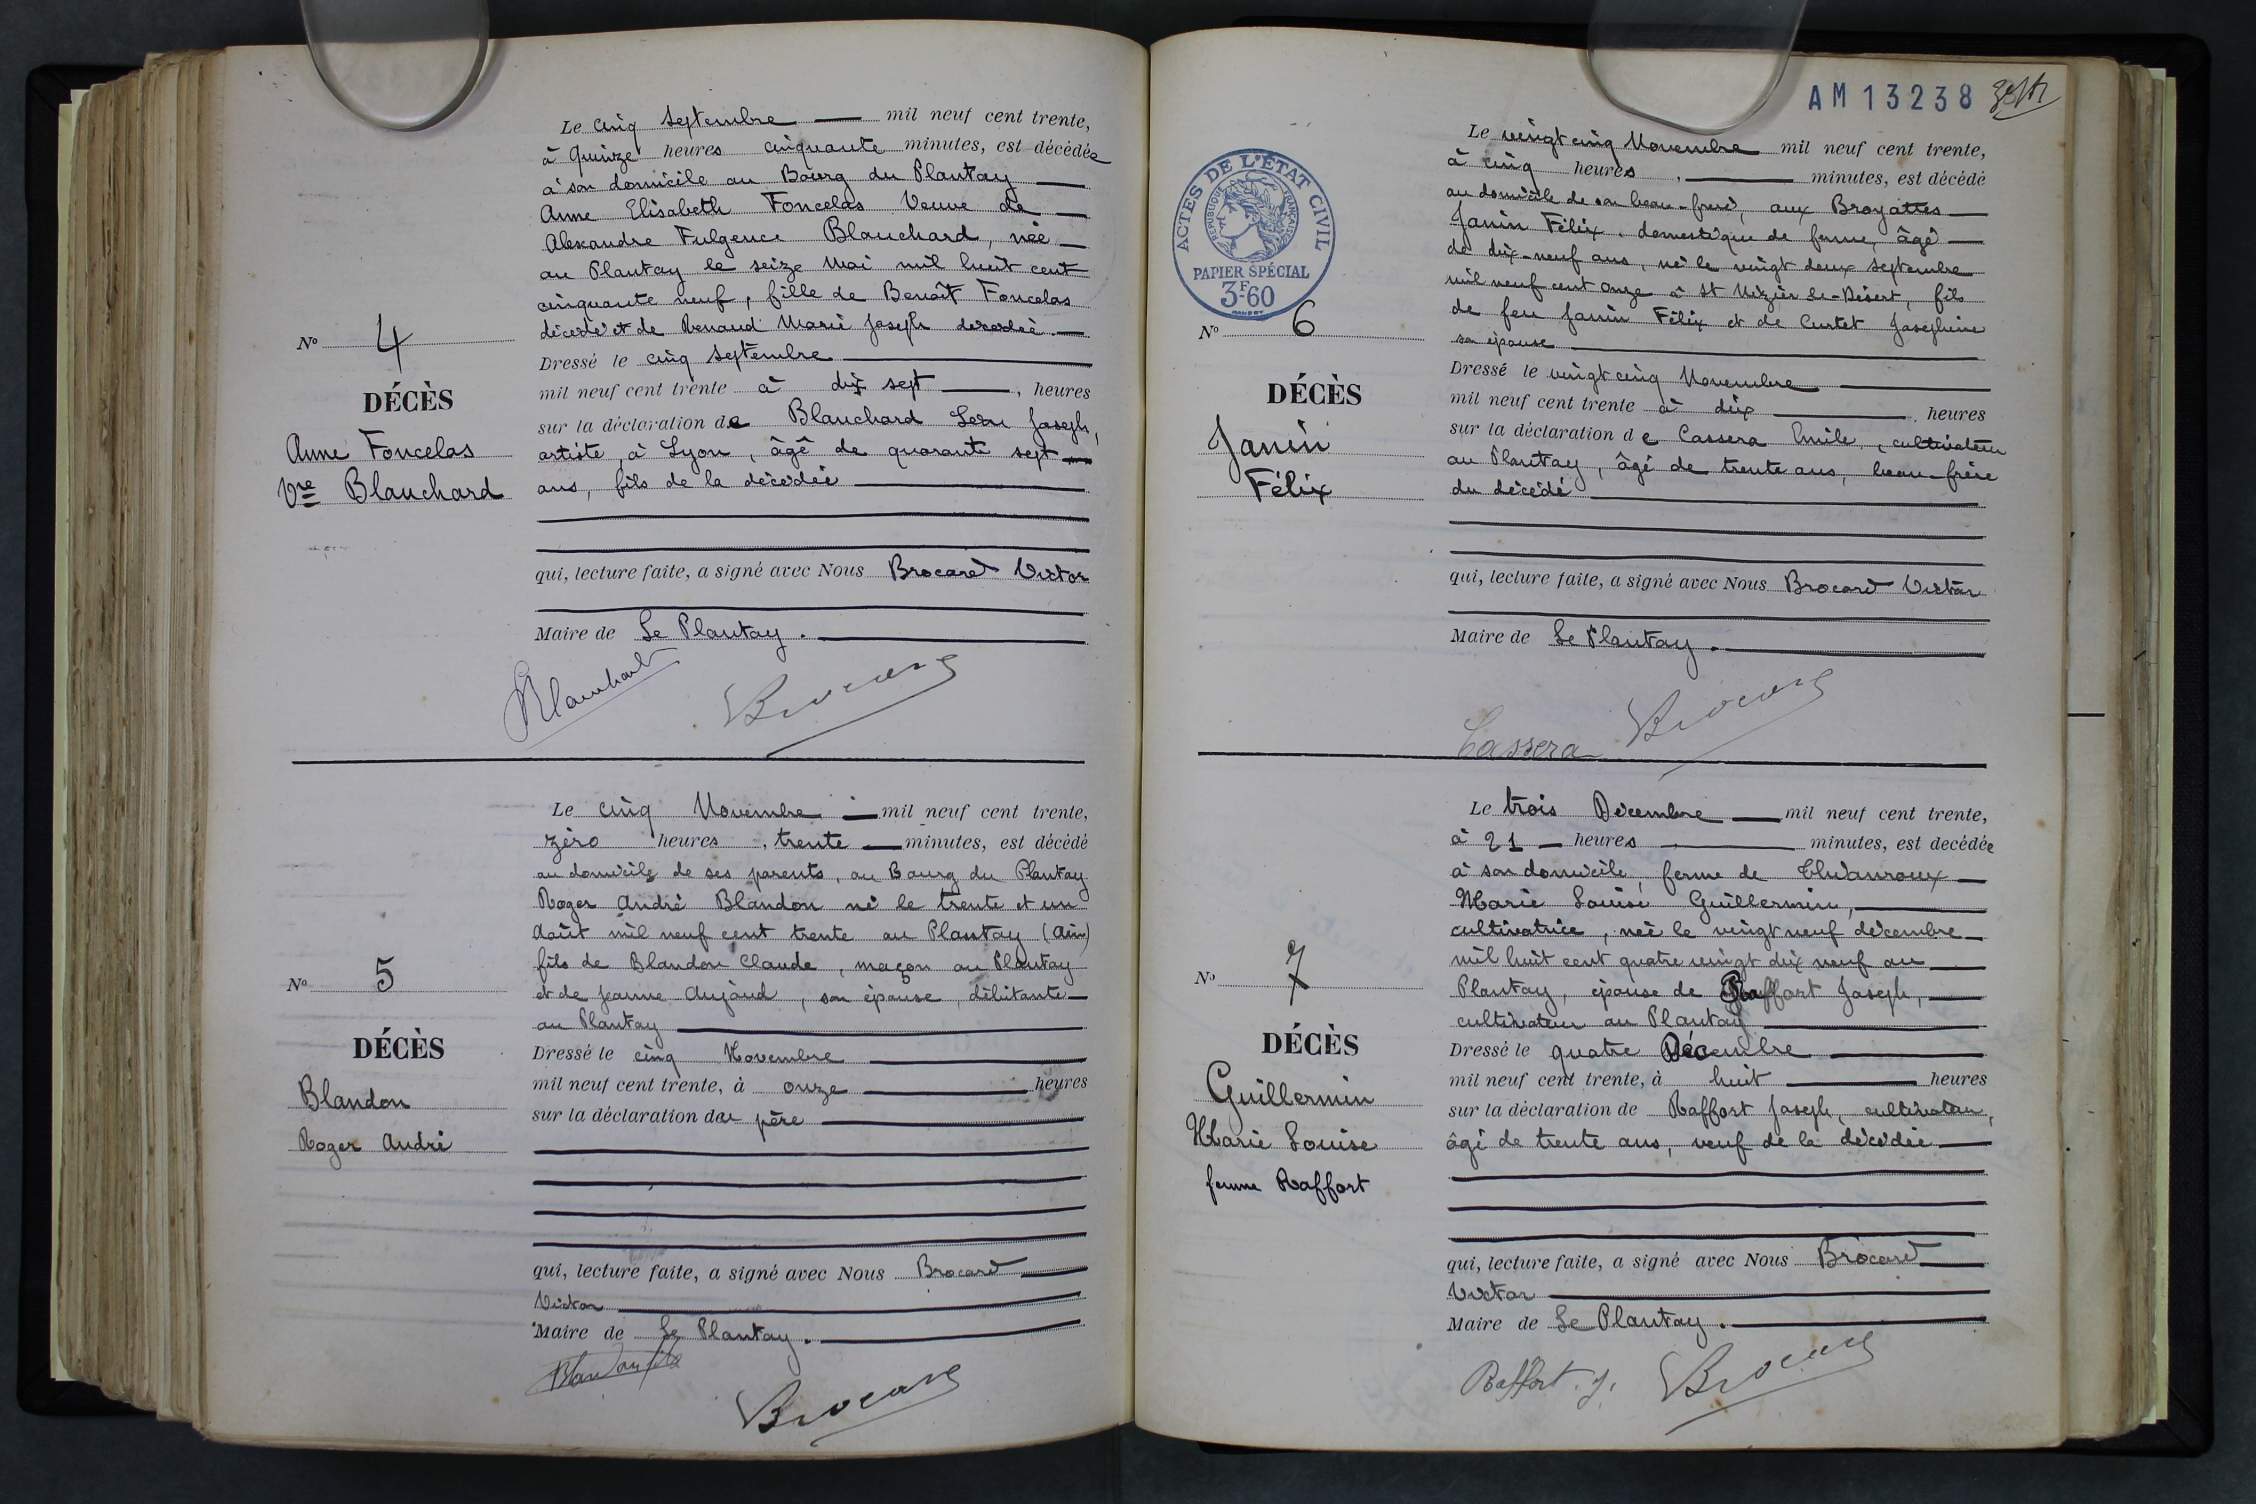 Le cinq septembre mil neuf cent trente,
à quinze heures cinquante minutes, est décédée
à son domicile au Bourg du Plantay
Anne Elisabeth Foncelas Veuve de
Alexandre Fulgence Blanchard, née
au Plantay le seize Mai mil huit cent
cinquante neuf, fille de Benoît Foncelas
décédé et de Renaud Marie Joseph décédée.
Dressé le cinq septembre
mil neuf cent trente à dix sept, heures
sur la déclaration de Blanchard Léon Joseph,
artiste, à Lyon, âgé de quarante sept
ans, fils de la décédée
qui, lecture faite, a signé avec Nous Brocard Victor
Maire de Le Plantay.
Blanchard
Brocard
No 4
DÉCÈS
Anne Foncelas
Vve Blanchard
Le cinq Novembre mil neuf cent trente,
zéro heures, trente minutes, est décédé
au domicile de ses parents, au Bourg du Plantay
Roger André Blandon né le trente et un
Août mil neuf cent trente au Plantay (Ain)
fils de Blandon Claude, maçon au Plantay
et de Jeanne Aujand, son épouse, débitante
au Plantay
Dressé le cinq Novembre
mil neuf cent trente, à onze heures
sur la déclaration du père
qui, lecture faite, a signé avec Nous Brocard
Victor
Maire de Le Plantay.
Brocard
No 5
DÉCÈS
Blandon
Roger André
AM 13238
ACTES DE L'ÉTAT CIVIL
RÉPUBLIQUE FRANÇAISE
PAPIER SPÉCIAL
3F-60
Le vingt cinq Novembre mil neuf cent trente,
à cinq heures, minutes, est décédé
au domicile de son beau-frère, aux Broyattes
Janin Félix, domestique de ferme, âgé
de dix-neuf ans, né le vingt deux septembre
mil neuf cent onze à St Nizier le-Désert, fils
de feu Janin Félix et de Curtet Joséphine
son épouse
Dressé le vingt cinq Novembre
mil neuf cent trente à dix, heures
sur la déclaration de Cassera Emile, cultivateur
au Plantay, âgé de trente ans, beau-frère
du décédé
qui, lecture faite, a signé avec Nous Brocard Victor
Maire de Le Plantay.
Cassera
Brocard
No 6
DÉCÈS
Janin
Félix
Le trois Décembre mil neuf cent trente,
à 21 heures minutes, est decédée
à son domicile, ferme de
Marie Louise Guillermin,
cultivatrice, née le vingt neuf décembre
mil huit cent quatre vingt dix neuf au
Plantay, épouse de Raffort Joseph,
cultivateur au Plantay
Dressé le quatre Décembre
mil neuf cent trente, à huit heures
sur la déclaration de Raffort Joseph, cultivateur,
âgé de trente ans, veuf de la décédée
qui, lecture faite, a signé avec Nous Brocard
Victor
Maire de Le Plantay.
Raffort. J.
Brocard
No 7
DÉCÈS
Guillermin
Marie Louise
femme Raffort